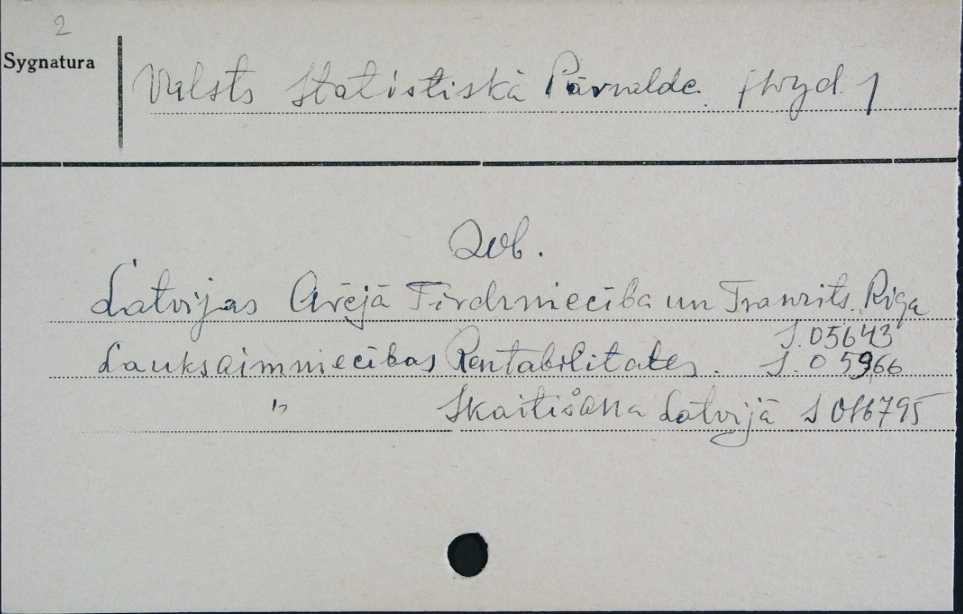 2
Sygnatura
Valsts Statistiskā Pārvalde. (wyd.)
Zob.
Latvijas Arējā Tirdzniecība un Tranzits. Riga
S.05643
Lauksaimniecības Rentabilitates. S.05966
" Skaitišana Latvijā S 016795